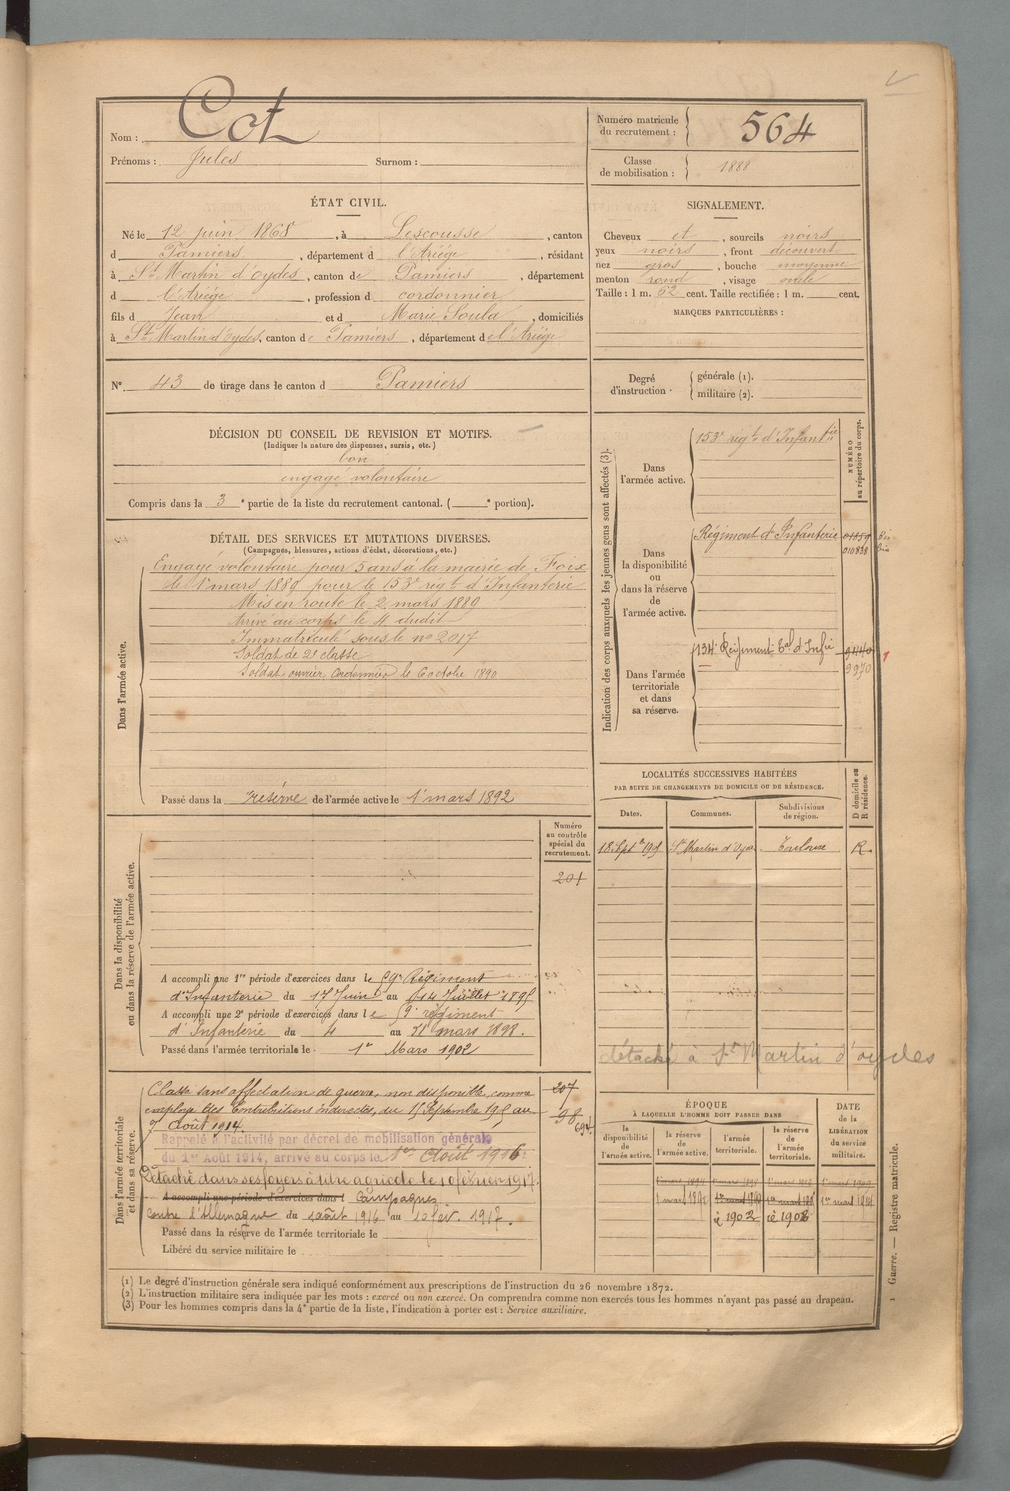 Nom : Cot
Prénoms : Jules Surnom :
Numéro matricule
du recrutement : 564
Classe
de mobilisation : 1888
ÉTAT CIVIL.
Né le 12 juin 1868, à Lescousse, canton
d Pamiers, département d l'Ariège, résidant
à St Martin d'oydes, canton de Pamiers, département
d l'Ariège, profession d cordonnier
fils d Jean et d Marie Soula, domiciliés
à St Martin d'oydes, canton de Pamiers, département de l'Ariège
N° 43 de tirage dans le canton d Pamiers
SIGNALEMENT.
Cheveux et, sourcils noirs
yeux noirs, front découvert
nez gros, bouche moyenne
menton rond, visage ovale
Taille : 1 m. 62 cent. Taille rectifiée : 1 m. cent.
MARQUES PARTICULIÈRES :
Degré
d'instruction.
générale (1).
militaire (2).
DÉCISION DU CONSEIL DE REVISION ET MOTIFS.
(Indiquer la nature des dispenses, sursis, etc.)
bon
engagé volontaire
Compris dans la 3e partie de la liste du recrutement cantonal. ( e portion).
DÉTAIL DES SERVICES ET MUTATIONS DIVERSES.
(Campagnes, blessures, actions d'éclat, décorations, etc.)
Dans l'armée active.
Engagé volontaire pour 5 ans à la mairie de Foix
le 1er mars 1889 pour le 153e régt d'Infanterie
Mis en route le 2 mars 1889
Arrivé au corps le 4 dudit
Immatriculé sous le no 2017
Soldat de 2e classe
Soldat ouvrier cordonnier le 6 octobre 1890
Passé dans la réserve de l'armée active le 1er mars 1892
Indication des corps auxquels les jeunes gens sont affectés (3).
NUMÉRO
au répertoire du corps.
Dans
l'armée active.
153e régt d'Infanterie
Dans
la disponibilité
ou
dans la réserve
de
l'armée active.
Régiment d'Infanterie
010838
Dans l'armée
territoriale
et dans
sa réserve.
134e Régiment Tal d'Infie
9970
LOCALITÉS SUCCESSIVES HABITÉES
PAR SUITE DE CHANGEMENTS DE DOMICILE OU DE RÉSIDENCE.
Dates.
Communes.
Subdivisions
de région.
D domicile ou
R résidence.
St Martin d'Oyde Toulouse R
détaché à St Martin d'oydes
Dans la disponibilité
ou dans la réserve de l'armée active.
Numéro
au contrôle
spécial du
recrutement.
201
A accompli une 1re période d'exercices dans le 59e Régiment
d'Infanterie du 17 Juin au 14 Juillet 1895
A accompli une 2e période d'exercices dans le 59e régiment
d'Infanterie du 4 au 31 mars 1898.
Passé dans l'armée territoriale le 1er Mars 1902
Dans l'armée territoriale
et dans sa réserve.
Classé sans affectation de guerre, non disponible, comme
employé des Contributions indirectes, du 15 Septembre au
Août 1914.
207
98
694
Rappelé à l'activité par décret de mobilisation générale
du 1er Août 1914, arrivé au corps le 1er Août 1916.
Détaché dans ses foyers à titre agricole le 10 février 1917.
A accompli une période d'exercices dans l Campagnes
contre l'Allemagne du 1er août 1916 au 10 fév. 1917.
Passé dans la réserve de l'armée territoriale le
Libéré du service militaire le
ÉPOQUE
À LAQUELLE L'HOMME DOIT PASSER DANS
la
disponibilité
de
l'armée active.
la
réserve
de
l'armée active.
l'armée
territoriale.
la
réserve
de
l'armée
territoriale.
DATE
de la
LIBÉRATION
du service
militaire.
1 mars 1892
1902
1908
1er mars 1914
(1) Le degré d'instruction générale sera indiqué conformément aux prescriptions de l'instruction du 26 novembre 1872.
(2) L'instruction militaire sera indiquée par les mots : exercé ou non exercé. On comprendra comme non exercés tous les hommes n'ayant pas passé au drapeau.
(3) Pour les hommes compris dans la 4e partie de la liste, l'indication à porter est : Service auxiliaire.
1 Guerre. — Registre matricule.